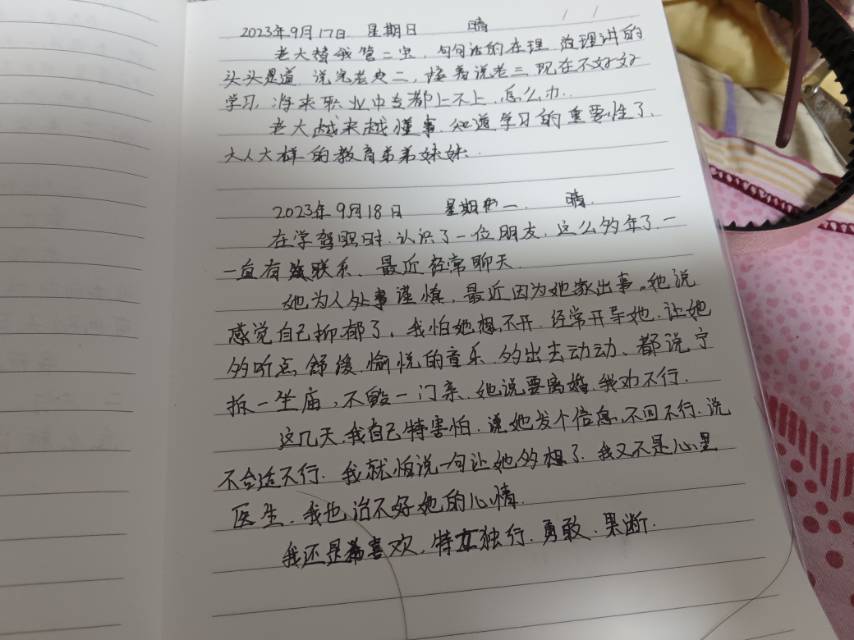 2023年9月17日 星期日 晴
老大替我管二宝,句句话的在理,治理讲的
头头是道,说完老大二,接着说老三,现在不好好
学习,将来职业中专都上不上,怎么办.
老大越来越懂事,知道学习的重要性了,
大人大样的教育弟弟妹妹.
2023年9月18日 星期一 晴
在学驾照时,认识了一位朋友,这么多年了,一
一直有联系、最近经常聊天.
她为人处事谨慎,最近因为她家出事。她说
感觉自己抑郁了,我怕她想不开,经常开导她,让她
多听点舒缓愉悦的音乐,多出去动动、都说宁
拆一坐庙,不毁一门亲,她说要离婚,我劝不行.
这几天,我自己特害怕,说她发个信息,不回不行,说
不合适不行,我就怕说一句让她多想了,我又不是心里
医生,我也治不好她的心情.
我还是喜欢,特立独行,勇敢,果断.